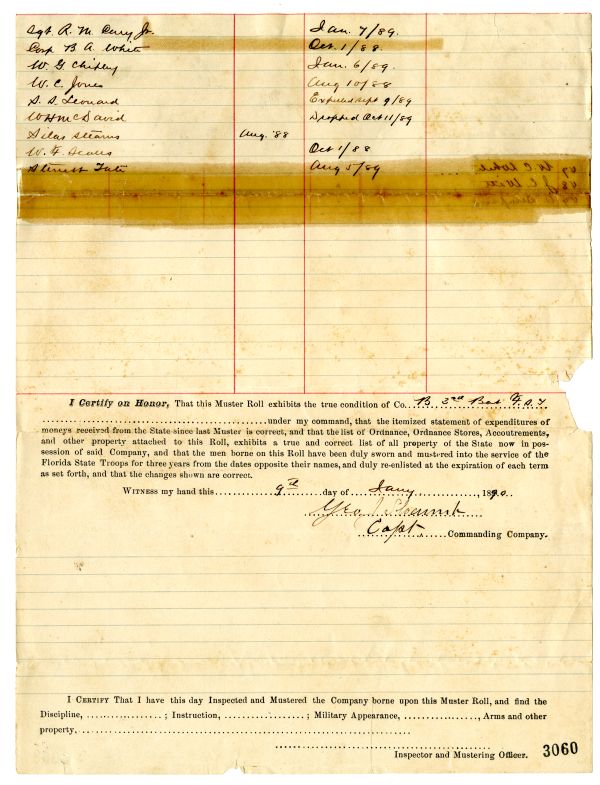 Sgt. R. M. Cary Jr. Jan. 7/89.
Corp B. A. White Oct. 1/88.
W. G. Chipley Jan. 6/89.
W. C. Jones Aug 10/88
S. S. Leonard Expired Sept 9/89
W H McDavid Dropped Oct 11/89
Silas Stearns Aug. '88
W. F. Oct 1/88
Tate Aug 5/89
I Certify on Honor, That this Muster Roll exhibits the true condition of Co. B 3rd Bat F.S.T
under my command, that the itemized statement of expenditures of
moneys received from the State since last Muster is correct, and that the list of Ordnance, Ordnance Stores, Accoutrements,
and other property attached to this Roll, exhibits a true and correct list of all property of the State now in pos-
session of said Company, and that the men borne on this Roll have been duly sworn and mustered into the service of the
Florida State Troops for three years from the dates opposite their names, and duly re-enlisted at the expiration of each term
as set forth, and that the changes shown are correct.
Witness my hand this 9th day of Jany, 1890.
Geo
Capt. Commanding Company.
I Certify That I have this day Inspected and Mustered the Company borne upon this Muster Roll, and find the
Discipline, ; Instruction, ; Military Appearance, , Arms and other
property,
Inspector and Mustering Officer. 3060